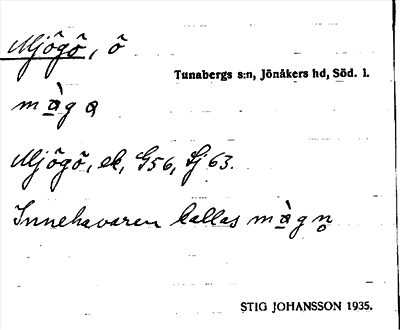 Mjögö, ö
Tunabergs s:n, Jönåkers hd, Söd. l.
màgɑ
Mjögö, ek, G56, Lj 63.
Innehavaren kallas màgn̥
STIG JOHANSSON 1935.